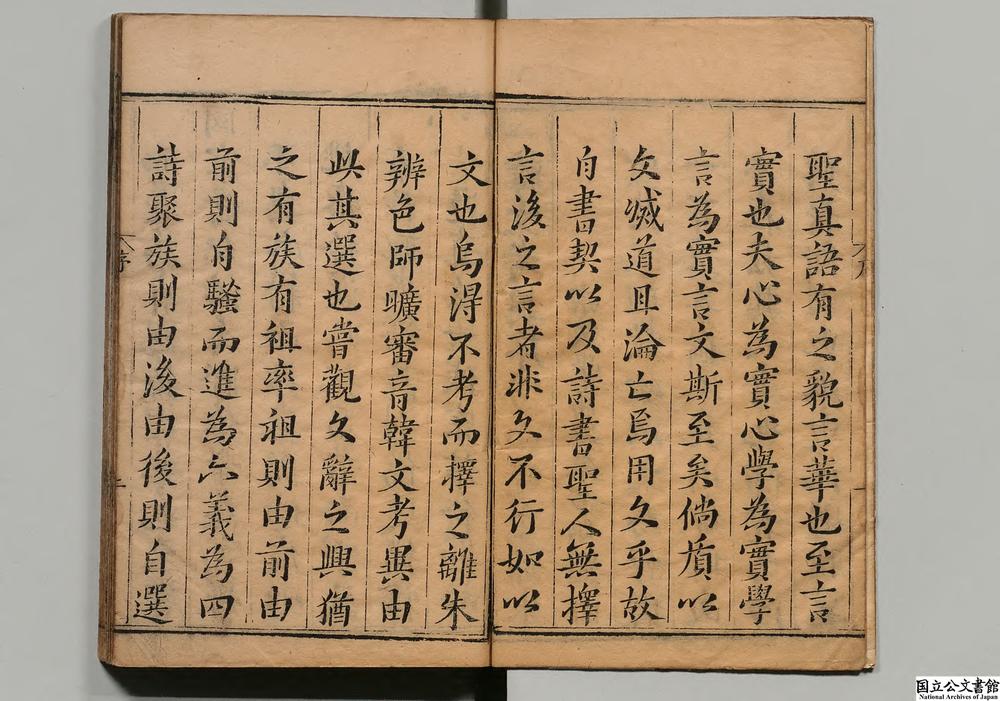 聖真語有之貌言華也至言
實也夫心為實心學為實學
言為實言文斯至矣倘質以
文滅道且淪亡烏用文乎故
自書契以及詩書聖人無擇
言後之言者非文不行如以
文也烏得不考而擇之離朱
辨色師曠審音韓文考異由
此其選也嘗觀文辭之興猶
之有族有祖率祖則由前由
前則自騷而進為六義為四
詩聚族則由後由後則自選
国立公文書館
National Archives of Japan